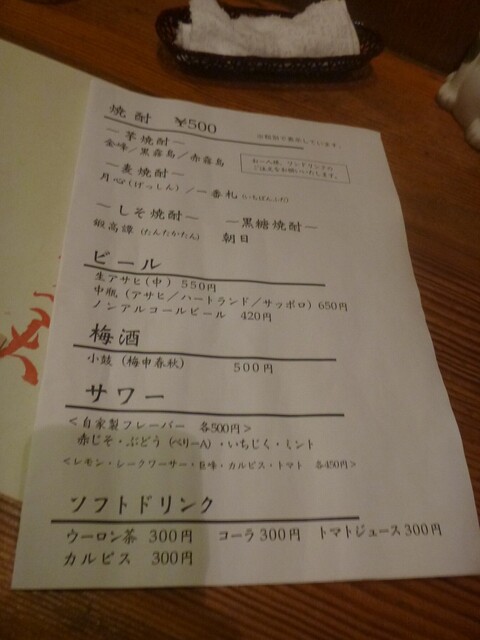 焼酎 ¥500
※税抜で表示しています。
お一人様、ワンドリンクの
ご注文をお願いいたします。
―芋焼酎―
金峰/黒霧島/赤霧島
―麦焼酎―
月心(げっしん)/一番札(いちばんふだ)
―しそ焼酎― ―黒糖焼酎―
鍛高譚(たんたかたん) 朝日
ビール
生アサヒ(中) 550円
中瓶(アサヒ/ハートランド/サッポロ) 650円
ノンアルコールビール 420円
梅酒
小鼓(梅申春秋) 500円
サワー
<自家製フレーバー 各500円>
赤じそ・ぶどう(ベリーA)・いちじく・ミント
<レモン・シークワーサー・巨峰・カルピス・トマト 各450円>
ソフトドリンク
ウーロン茶 300円 コーラ 300円 トマトジュース 300円
カルピス 300円